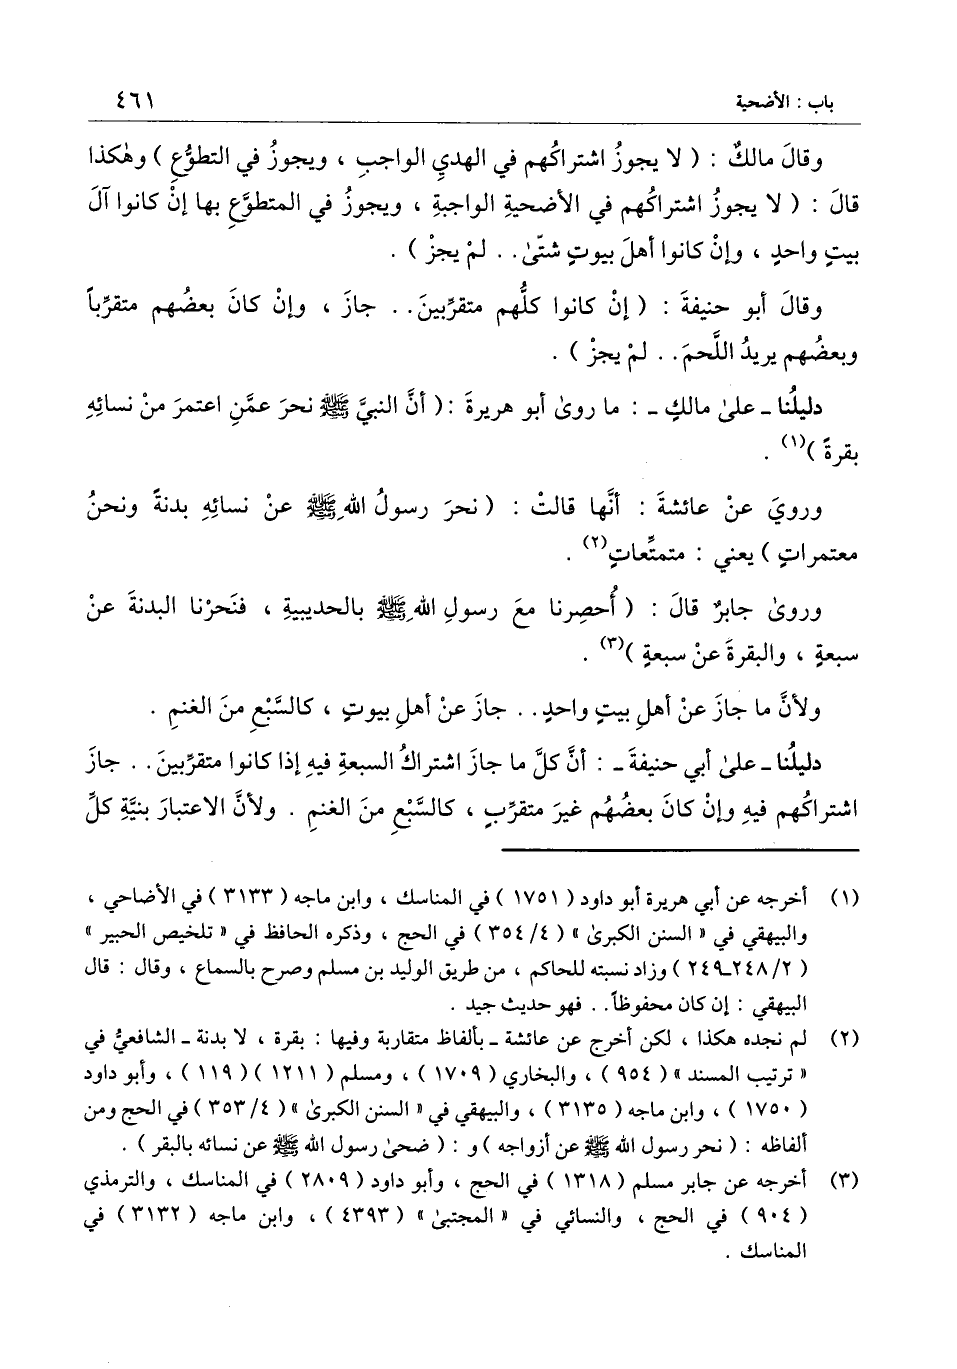 باب : الأضحية ٤٦١
وقالَ مالكٌ : ( لا يجوزُ اشتراكُهم في الهديِ الواجبِ ، ويجوزُ في التطوُّعِ ) وهٰكذا
قالَ : ( لا يجوزُ اشتراكُهم في الأضحيةِ الواجبةِ ، ويجوزُ في المتطوَّعِ بها إنْ كانوا آلَ
بيتٍ واحدٍ ، وإنْ كانوا أهلَ بيوتٍ شتّىٰ . . لمْ يجزْ ) .
وقالَ أبو حنيفةَ : ( إنْ كانوا كلُّهم متقرِّبينَ . . جازَ ، وإنْ كانَ بعضُهم متقرِّباً
وبعضُهم يريدُ اللَّحمَ . . لمْ يجزْ ) .
دليلُنا ـ علىٰ مالكٍ ـ : ما روىٰ أبو هريرةَ : ( أنَّ النبيَّ ﷺ نحرَ عمَّنِ اعتمرَ منْ نسائِهِ
بقرةً )(١) .
ورويَ عنْ عائشةَ : أنَّها قالتْ : ( نحرَ رسولُ اللهِ ﷺ عنْ نسائِهِ بدنةً ونحنُ
معتمراتٍ ) يعني : متمتِّعاتٍ(٢) .
وروىٰ جابرٌ قالَ : ( أُحصِرنا معَ رسولِ اللهِ ﷺ بالحديبيةِ ، فنَحرْنا البدنةَ عنْ
سبعةٍ ، والبقرةَ عنْ سبعةٍ )(٣) .
ولأنَّ ما جازَ عنْ أهلِ بيتٍ واحدٍ . . جازَ عنْ أهلِ بيوتٍ ، كالسَّبْعِ منَ الغنمِ .
دليلُنا ـ علىٰ أبي حنيفةَ ـ : أنَّ كلَّ ما جازَ اشتراكُ السبعةِ فيهِ إذا كانوا متقرِّبينَ . . جازَ
اشتراكُهم فيهِ وإنْ كانَ بعضُهُم غيرَ متقرِّبٍ ، كالسَّبْعِ منَ الغنمِ . ولأنَّ الاعتبارَ بنيَّةِ كلِّ
(١) أخرجه عن أبي هريرة أبو داود ( ١٧٥١ ) في المناسك ، وابن ماجه ( ٣١٣٣ ) في الأضاحي ،
والبيهقي في « السنن الكبرىٰ » ( ٤/ ٣٥٤ ) في الحج ، وذكره الحافظ في « تلخيص الحبير »
( ٢/ ٢٤٨ـ٢٤٩ ) وزاد نسبته للحاكم ، من طريق الوليد بن مسلم وصرح بالسماع ، وقال : قال
البيهقي : إن كان محفوظاً . . فهو حديث جيد .
(٢) لم نجده هكذا ، لكن أخرج عن عائشة ـ بألفاظ متقاربة وفيها : بقرة ، لا بدنة ـ الشافعيُّ في
« ترتيب المسند » ( ٩٥٤ ) ، والبخاري ( ١٧٠٩ ) ، ومسلم ( ١٢١١ ) ( ١١٩ ) ، وأبو داود
( ١٧٥٠ ) ، وابن ماجه ( ٣١٣٥ ) ، والبيهقي في « السنن الكبرىٰ » ( ٤/ ٣٥٣ ) في الحج ومن
ألفاظه : ( نحر رسول الله ﷺ عن أزواجه ) و : ( ضحىٰ رسول الله ﷺ عن نسائه بالبقر ) .
(٣) أخرجه عن جابر مسلم ( ١٣١٨ ) في الحج ، وأبو داود ( ٢٨٠٩ ) في المناسك ، والترمذي
( ٩٠٤ ) في الحج ، والنسائي في « المجتبىٰ » ( ٤٣٩٣ ) ، وابن ماجه ( ٣١٣٢ ) في
المناسك .